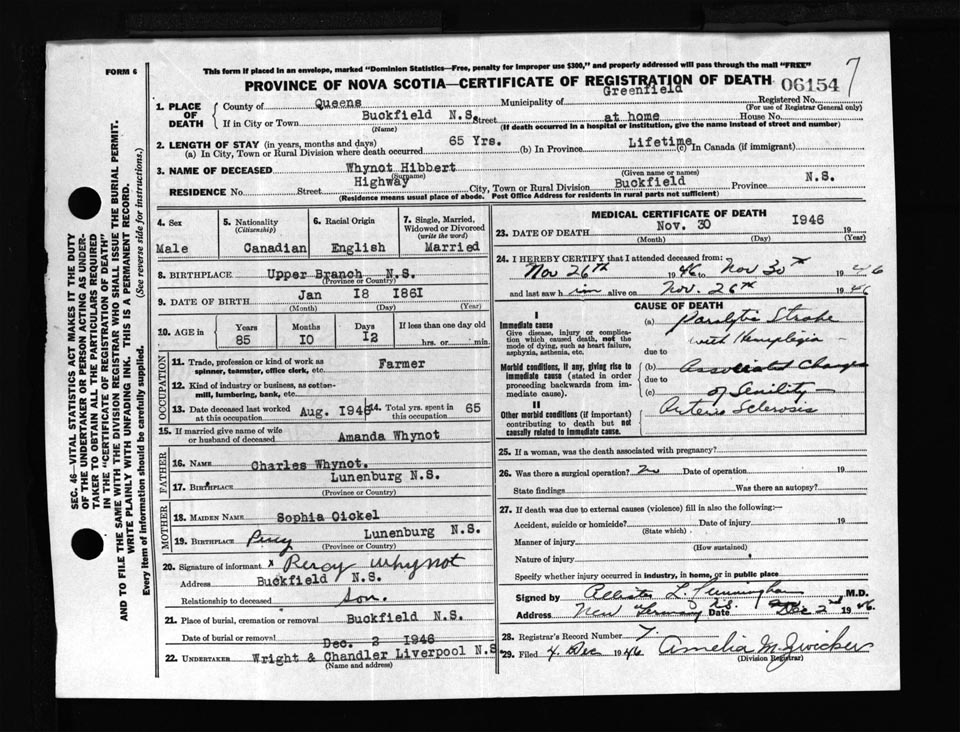 FORM 6
This form if placed in an envelope, marked "Dominion Statistics—Free, penalty for improper use $300," and properly addressed will pass through the mail "FREE"
7
PROVINCE OF NOVA SCOTIA—CERTIFICATE OF REGISTRATION OF DEATH 06154
1. PLACE OF DEATH
County of Queens Municipality of Greenfield Registered No.
(For use of Registrar General only)
If in City or Town Buckfield N.S. Street at home House No.
(Name) (If death occurred in a hospital or institution, give the name instead of street and number)
2. LENGTH OF STAY (in years, months and days)
(a) In City, Town or Rural Division where death occurred 65 Yrs. (b) In Province Lifetime (c) In Canada (if immigrant)
3. NAME OF DECEASED Whynot Hibbert
(Surname) (Given name or names)
RESIDENCE No. Street Highway City, Town or Rural Division Buckfield Province N.S.
(Residence means usual place of abode. Post Office Address for residents in rural parts not sufficient)
4. Sex
Male
5. Nationality
(Citizenship)
Canadian
6. Racial Origin
English
7. Single, Married, Widowed or Divorced
(write the word)
Married
8. BIRTHPLACE Upper Branch N.S.
(Province or Country)
9. DATE OF BIRTH Jan 18 1861
(Month) (Day) (Year)
10. AGE in
Years Months Days If less than one day old
85 10 12 hrs. or min.
OCCUPATION
11. Trade, profession or kind of work as spinner, teamster, office clerk, etc. Farmer
12. Kind of industry or business, as cotton-mill, lumbering, bank, etc.
13. Date deceased last worked at this occupation Aug. 1945 14. Total yrs. spent in this occupation 65
15. If married give name of wife or husband of deceased Amanda Whynot
FATHER
16. NAME Charles Whynot.
17. BIRTHPLACE Lunenburg N.S.
(Province or Country)
MOTHER
18. MAIDEN NAME Sophia Oickel
19. BIRTHPLACE Percy Lunenburg N.S.
(Province or Country)
20. Signature of informant x Percy whynot
Address Buckfield N.S.
Relationship to deceased Son.
21. Place of burial, cremation or removal Buckfield N.S.
Date of burial or removal Dec. 2 1946
22. UNDERTAKER Wright & Chandler Liverpool N.S
(Name and address)
MEDICAL CERTIFICATE OF DEATH
23. DATE OF DEATH Nov. 30 1946 19
(Month) (Day) (Year)
24. I HEREBY CERTIFY that I attended deceased from:
Nov 26th 1946 to Nov 30th 1946
and last saw him alive on Nov. 26th 1946
CAUSE OF DEATH
I
Immediate cause
Give disease, injury or complication which caused death, not the mode of dying, such as heart failure, asphyxia, asthenia, etc.
(a) Paralytic Stroke
with Hemiplegia
due to
Morbid conditions, if any, giving rise to immediate cause (stated in order proceeding backwards from immediate cause).
(b) Associated Changes
due to
(c) of Senility
II
Other morbid conditions (if important) contributing to death but not causally related to immediate cause.
Arterio Sclerosis
25. If a woman, was the death associated with pregnancy?
26. Was there a surgical operation? no Date of operation 19
State findings Was there an autopsy?
27. If death was due to external causes (violence) fill in also the following:—
Accident, suicide or homicide? Date of injury 19
(State which)
Manner of injury
(How sustained)
Nature of injury
Specify whether injury occurred in industry, in home, or in public place
Signed by L. Cunningham M.D.
Address New Germany N.S. Date Dec 2nd 1946.
28. Registrar's Record Number 7.
29. Filed 4 Dec 1946 Amelia M Zwicker
(Division Registrar)
SEC. 46—VITAL STATISTICS ACT MAKES IT THE DUTY
OF THE UNDERTAKER OR PERSON ACTING AS UNDER-
TAKER TO OBTAIN ALL THE PARTICULARS REQUIRED
IN THE "CERTIFICATE OF REGISTRATION OF DEATH"
AND TO FILE THE SAME WITH THE DIVISION REGISTRAR WHO SHALL ISSUE THE BURIAL PERMIT.
WRITE PLAINLY WITH UNFADING INK. THIS IS A PERMANENT RECORD.
Every item of information should be carefully supplied. (See reverse side for instructions.)